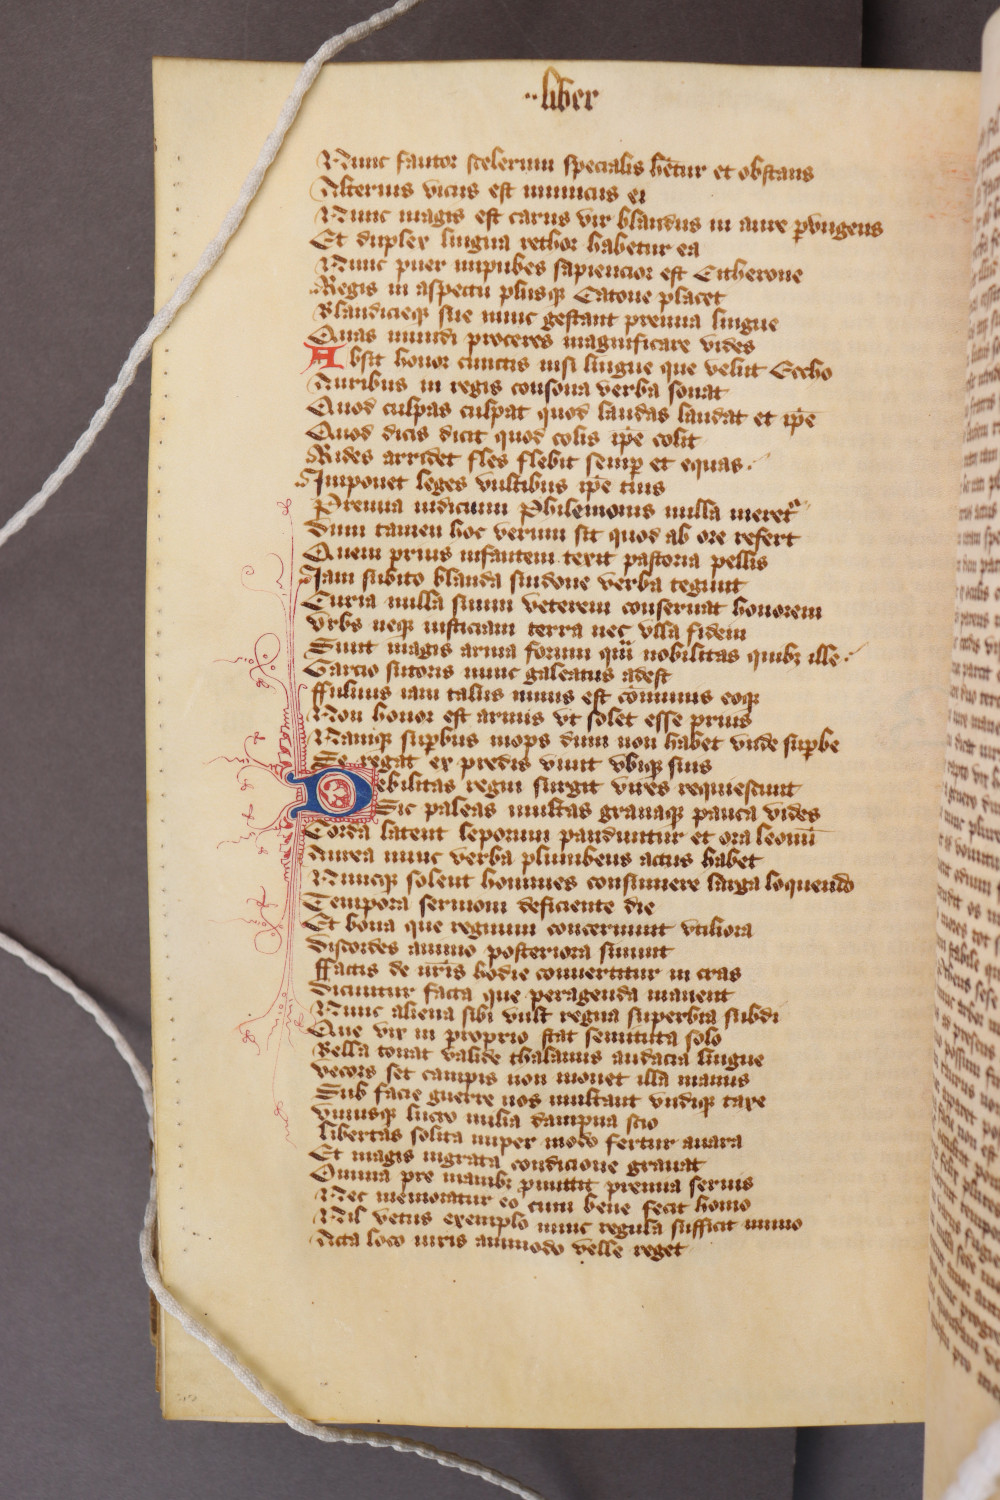 ··liber
Nunc fautor scelerum specialis hetur et obstans
Alterius vicus est inimicus ei
Nunc magis est carus vir blandus in aure pungens
Et duplex lingua rethor habetur ea
Nunc puer impubes sapiencior est Citherone
Regis in aspectu plusqꝫ Catone placet
Blandicieqꝫ sue nunc gestant premia lingue
Quas mundi proceres magnificare vides
Absit honor cunctis nisi lingue que velut Eccho
Auribus in regis consona verba sonat
Quod culpas culpat quod laudas laudat et ip̄e
Quod dicis dicit quod colis ip̄e colit
Rides arridet fles flebit semp et equas
Imponet leges vultibus ip̄e tuis
Premia iudicium Philemonis nulla meret᷑
Dum tamen hoc verum sit quod ab ore refert
Quem prius infantem texit pastoria pellis
Iam subito blanda sindone verba tegunt
Curia nulla suum veterem conseruat honorem
Vrbs neqꝫ iusticiam terra nec vlla fidem
Sunt magis arma forum qui nobilitas quibꝫ ille
Garcio sutoris nunc galeatus adest
ffuluus iam talus nimis est cōmunis eoqꝫ
Non honor est armis vt solet esse prius
Namqꝫ supbus inops dum non habet vnde supbe
Se regat ex predis viuit vbiqꝫ suis
Debilitas regni surgit vires requiescunt
Sic paleas multas granaqꝫ pauca vides
Corda latent leporum panduntur et ora leonū
Aurea nunc verba plumbeus actus habet
Nuncqꝫ solent homines consumere larga loquendo
Tempora sermoni deficiente die
Et bona que regnum concernunt vtiliora
discordes animo posteriora sinunt
ffactis de nr̄is hodie conuertitur in cras
dicuntur facta que peragenda manent
Nunc aliena sibi vult regna superbia subdi
Que vir in proprio stat semituta solo
Bella tonat valide thalamis audacia lingue
vecors set campis non mouet illa manus
Sub facie guerre nos multant vndiqꝫ taxe
vniusqꝫ lucro milia dampna scio
libertas solita nuper modo fertur auara
Et magis ingrata condicione grauat
Omnia pre manibꝫ pmittit premia seruis
Nec memoratur eo cum bene fecit homo
Nil vetus exemplo nunc regula sufficit immo
Acta loco iuris ammodo velle reget